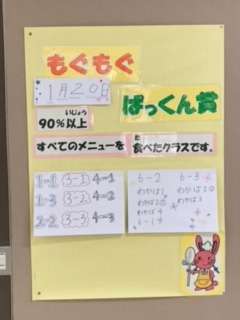 もぐもぐ
1月20日
ぱっくん賞
いじょう
90%以上
た
すべてのメニューを 食べたクラスです。
1-1 3-1 4-1
1-3 3-2 4-2
2-2 3-3 4-3
6-2 6-3
わかば1
わかば2
わかば4
6-1